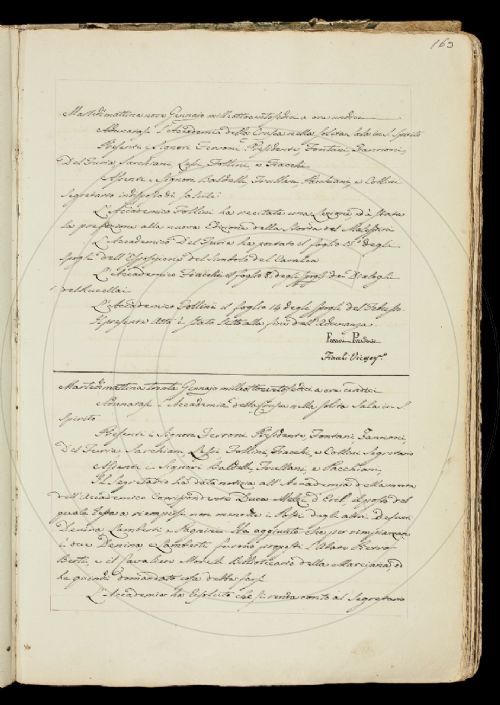 163
Martedi mattina nove Gennaio milleottocentosedici a ore undici
Adunatasi l'Accademia della Crusca nella solita Sala in S. Spirito
Presenti i Signori Ferroni Presidente, Fontani, Zannoni,
Del Furia, Sarchiani, Lessi, Follini, e Fiacchi
Assenti i Signori Baldelli, Targioni, e Collini
Segretario indisposto di salute:
L'Accademico Follini ha recitata una Lezione ed è stata
la prefazione alla nuova Edizione della Storia del Malispini
L'Accademico Del Furia ha portato il foglio 15.° degli
Spogli dell'Esposizione del Simbolo del Cavalca
L'Accademico Fiacchi il foglio 8. degli Spogli dei Dialoghi
del Rucellai
L'Accademico Follini il foglio 14 degli Spogli del
Il presente Atto è stato letto alla fine dell'Adunanza
Ferroni Presidente
Fiacchi Viceseg.°
Martedi mattina trenta Gennaio milleottocentosedici a ore undici
Adunatasi l'Accademia della Crusca nella solita Sala in S.
Spirito
Presenti i Signori Ferroni Presidente, Fontani, Zannoni,
Del Furia, Sarchiani, Lessi, Follini, Fiacchi, e Collini Segretario
Assenti i Signori Baldelli, e
Il Segretario ha data notizia all'Accademia della morte
dell'Accademico Corrispondente Duca Melzi d'Eril, il posto del
quale resta a riempirsi non meno che i posti degli altri Defunti
Denina Lamberti e Napione. Ha aggiunto che per rimpiazzare
i due Denina e Lamberti furono proposti l'Abate Pietro
Bettio e il Cavaliere Morelli Bibliotecario della Marciana, ed
ha quindi domandato cosa debba farsi
L'Accademia ha risoluto che si renda conto al Segretario